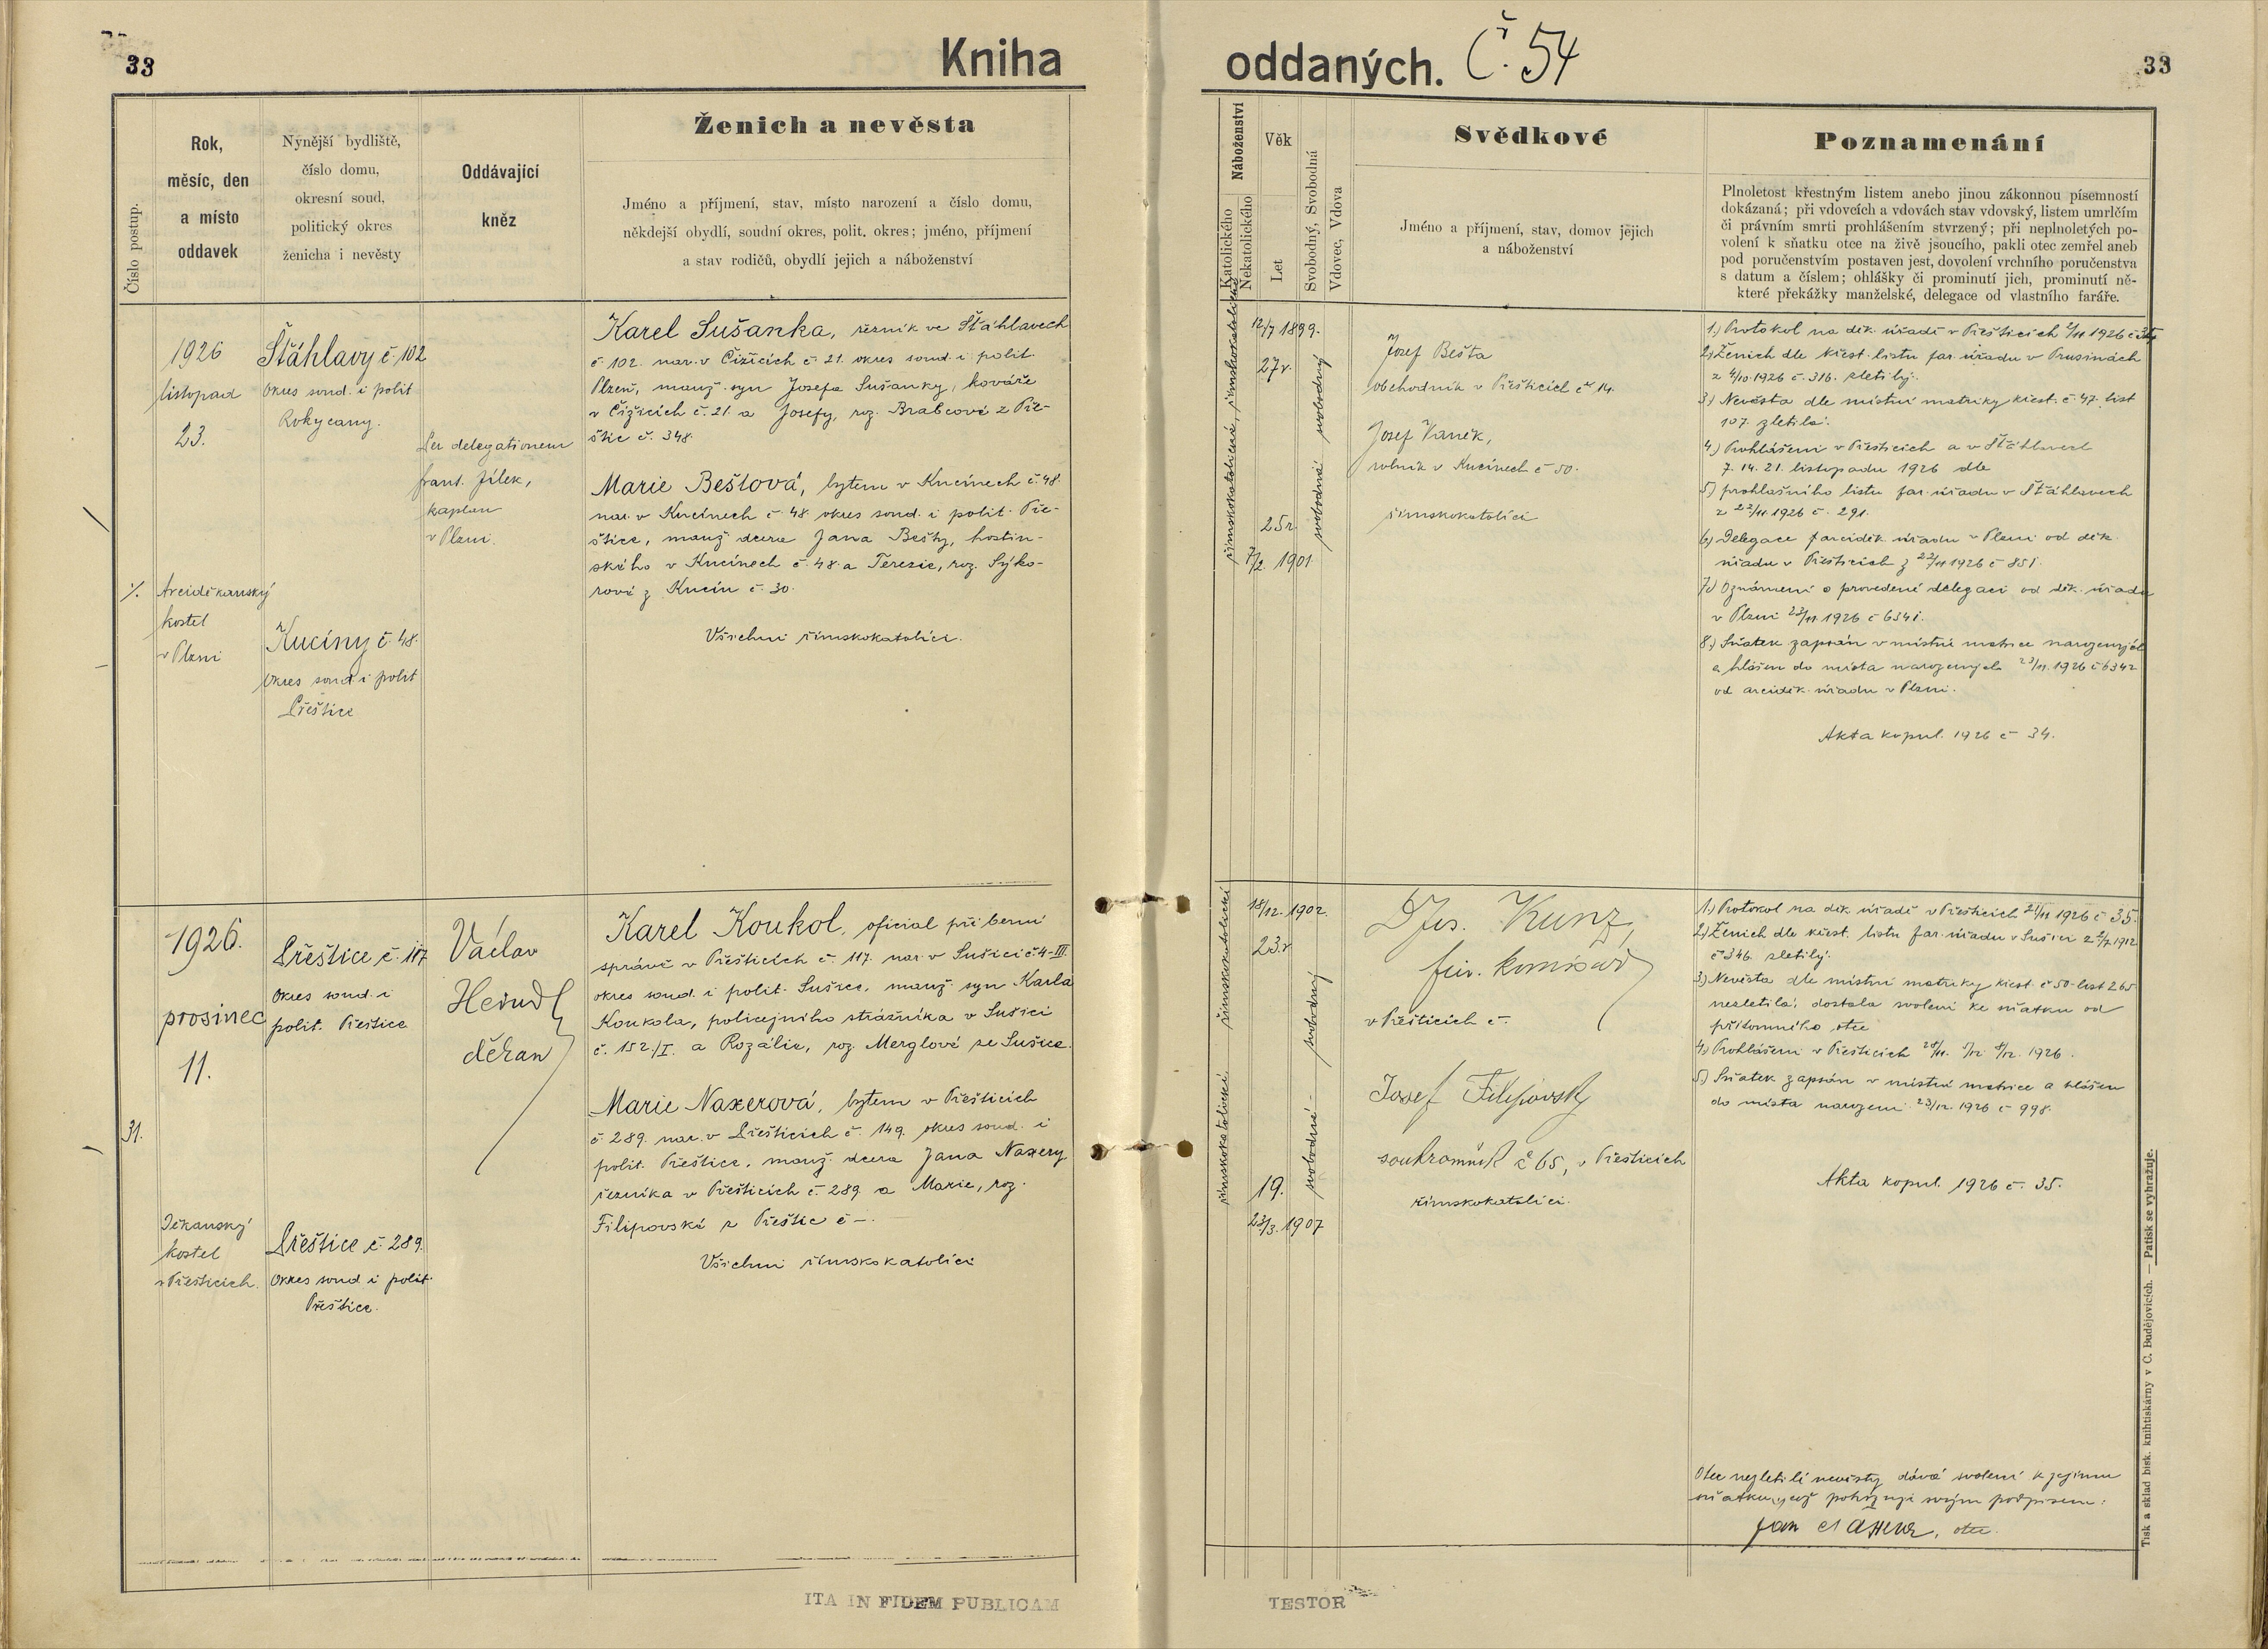 33
Kniha
oddaných. Č. 54
33
Číslo postup.
Rok,
měsíc, den
a místo
oddavek
Nynější bydliště,
číslo domu,
okresní soud,
politický okres
ženicha i nevěsty
Oddávající
kněz
Ženich a nevěsta
Jméno a příjmení, stav, místo narození a číslo domu,
někdejší obydlí, soudní okres, polit. okres; jméno, příjmení
a stav rodičů, obydlí jejich a náboženství
Náboženství
Katolického
Nekatolického
Věk
Let
Svobodný, Svobodná
Vdovec, Vdova
Svědkové
Jméno a příjmení, stav, domov jejich
a náboženství
Poznamenání
Plnoletost křestným listem anebo jinou zákonnou písemností
dokázaná; při vdovcích a vdovách stav vdovský, listem umrlčím
či právním smrti prohlášením stvrzený; při neplnoletých po-
volení k sňatku otce na živě jsoucího, pakli otec zemřel aneb
pod poručenstvím postaven jest, dovolení vrchního poručenstva
s datum a číslem; ohlášky či prominutí jich, prominutí ně-
které překážky manželské, delegace od vlastního faráře.
1926
listopad
23.
Arciděkanský
kostel
v Plzni
Šťáhlavy č. 102
Okres soud. i polit
Rokycany.
Kucíny č. 48.
Okres soud. i polit
Přeštice
Per delegationem
frant. Jílek,
kaplan
v Plzni.
Karel Sušanka, řezník ve Šťáhlavech
č. 102. nar. v Čižicích č. 21. okres soud. i polit.
Plzeň, manž. syn Josefa Sušanky, kováře
v Čižicích č. 21. a Josefy, roz. Brabcové z Pře-
štic č. 348.
Marie Beštová, bytem v Kucínech č. 48.
nar. v Kucínech č. 48. okres soud. i polit. Pře-
štice, manž. dcera Jana Bešty, hostin-
ského v Kucínech č. 48. a Terezie, roz. Sýko-
rové z Kucín č. 30.
Všichni římskokatolíci.
římskokatolická, římskokatolické
12/7 1899.
27 r.
25 r.
7/2. 1901
svobodná svobodný
Josef Bešta
obchodník v Přešticích č. 14.
Josef Vaněk,
rolník v Kucínech č. 50.
římskokatolíci
1.) Protokol na děk. úřadě v Přešticích /11 1926 č.
2.) Ženich dle křest. listu far. úřadu v Prusinách
z 4/10. 1926 č. 316. zletilý.
3.) Nevěsta dle místní matriky křest. č. 47. list
107. zletilá.
4.) Prohlášeni v Přešticích a v Šťáhlavech
7. 14. 21. listopadu 1926 dle
5.) prohlašního listu far. úřadu v Šťáhlavech
z 22/11. 1926 č. 291.
6.) Delegace f. arciděk. úřadu v Plzni od děk.
úřadu v Přešticích z 22/11 1926 č. 851.
7.) Oznámení o provedené delegaci od děk. úřadu
v Plzni 23/11. 1926 č. 6341.
8.) Sňatek zapsán v místní matrice narozených
a hlášen do místa narozených 23/11. 1926 č. 6342
od arciděk. úřadu v Plzni.
Akta kopul. 1926 č. 34.
1926.
prosinec
11.
31.
Děkanský
kostel
v Přešticích.
Přeštice č. 117
Okres soud. i
polit. Přeštice
Přeštice č. 289.
Okres soud. i polit.
Přeštice.
Václav
Heindl
děkan
Karel Koukol, oficial při berní
správě v Přešticích č. 117. nar. v Sušici č. 4-III.
okres soud. i polit. Sušice, manž. syn Karla
Koukola, policejního strážníka v Sušici
č. 152./I. a Rozálie, roz. Merglové ze Sušice.
Marie Naxerová, bytem v Přešticích
č. 289. nar. v Přešticích č. 149. okres soud. i
polit. Přeštice, manž. dcera Jana Naxery
řezníka v Přešticích č. 289. a Marie, roz.
Filipovské z Přeštic č —.
Všichni římskokatolíci
římskokatolická římskokatolické
18/12. 1902.
23. r
19.
23/3. 1907
svobodná - svobodný
Kunz,
komisař
v Přešticích č.
Josef Filipovský
soukromník č 65, v Přešticích
římskokatolíci.
1.) Protokol na děk. úřadě v Přešticích 21/11 1926 č. 35.
2.) Ženich dle křest. listu far. úřadu v Sušici z 1912
č. 346. zletilý.
3.) Nevěsta dle místní matriky křest. č. 50 - list 265
nezletilá, dostala svolení ke sňatku od
přítomného otce
4.) Prohlášeni v Přešticích 28/11. 5/12. 8/12. 1926.
5.) Sňatek zapsán v místní matrice a hlášen
do místa narození 23/12. 1926 č. 998.
Akta kopul. 1926 č. 35.
Otec nezletilé nevěsty dává svolení k jejímu
sňatku, což potvrzuje svým podpisem:
Jan Naxera, otec.
Tisk a sklad bisk. knihtiskárny v Č. Budějovicích. — Patisk se vyhražuje.
ITA IN FIDEM PUBLICAM
TESTOR